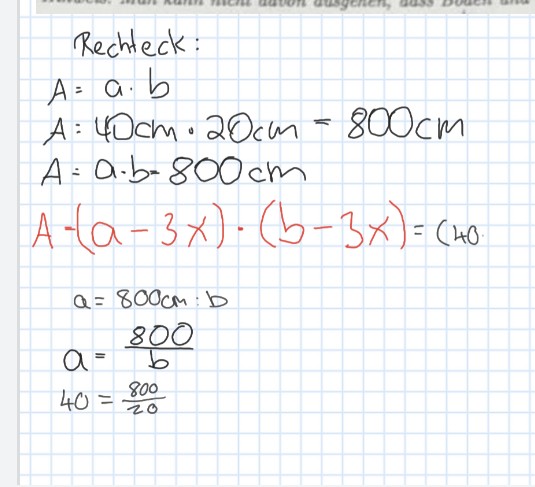 Hinweis: Man kann nicht davon ausgehen, dass Böden und
Rechteck:
A = a · b
A = 40cm · 20cm = 800cm
A = a·b = 800cm
A = (a - 3x) · (b - 3x) = (40
a = 800cm : b
a = 800/b
40 = 800/20